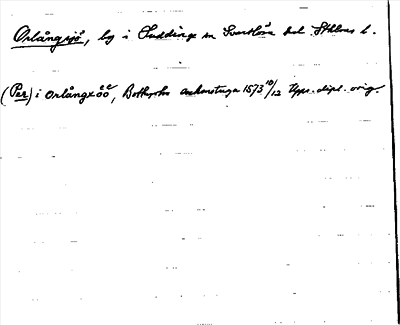 Orlångsjö, by i Huddinge sn Svartlösa hd Sthlms l.
(Per) i orlångxöö, Bothyrka sockenstuga 1573 10/12 Upps. dipl. orig.